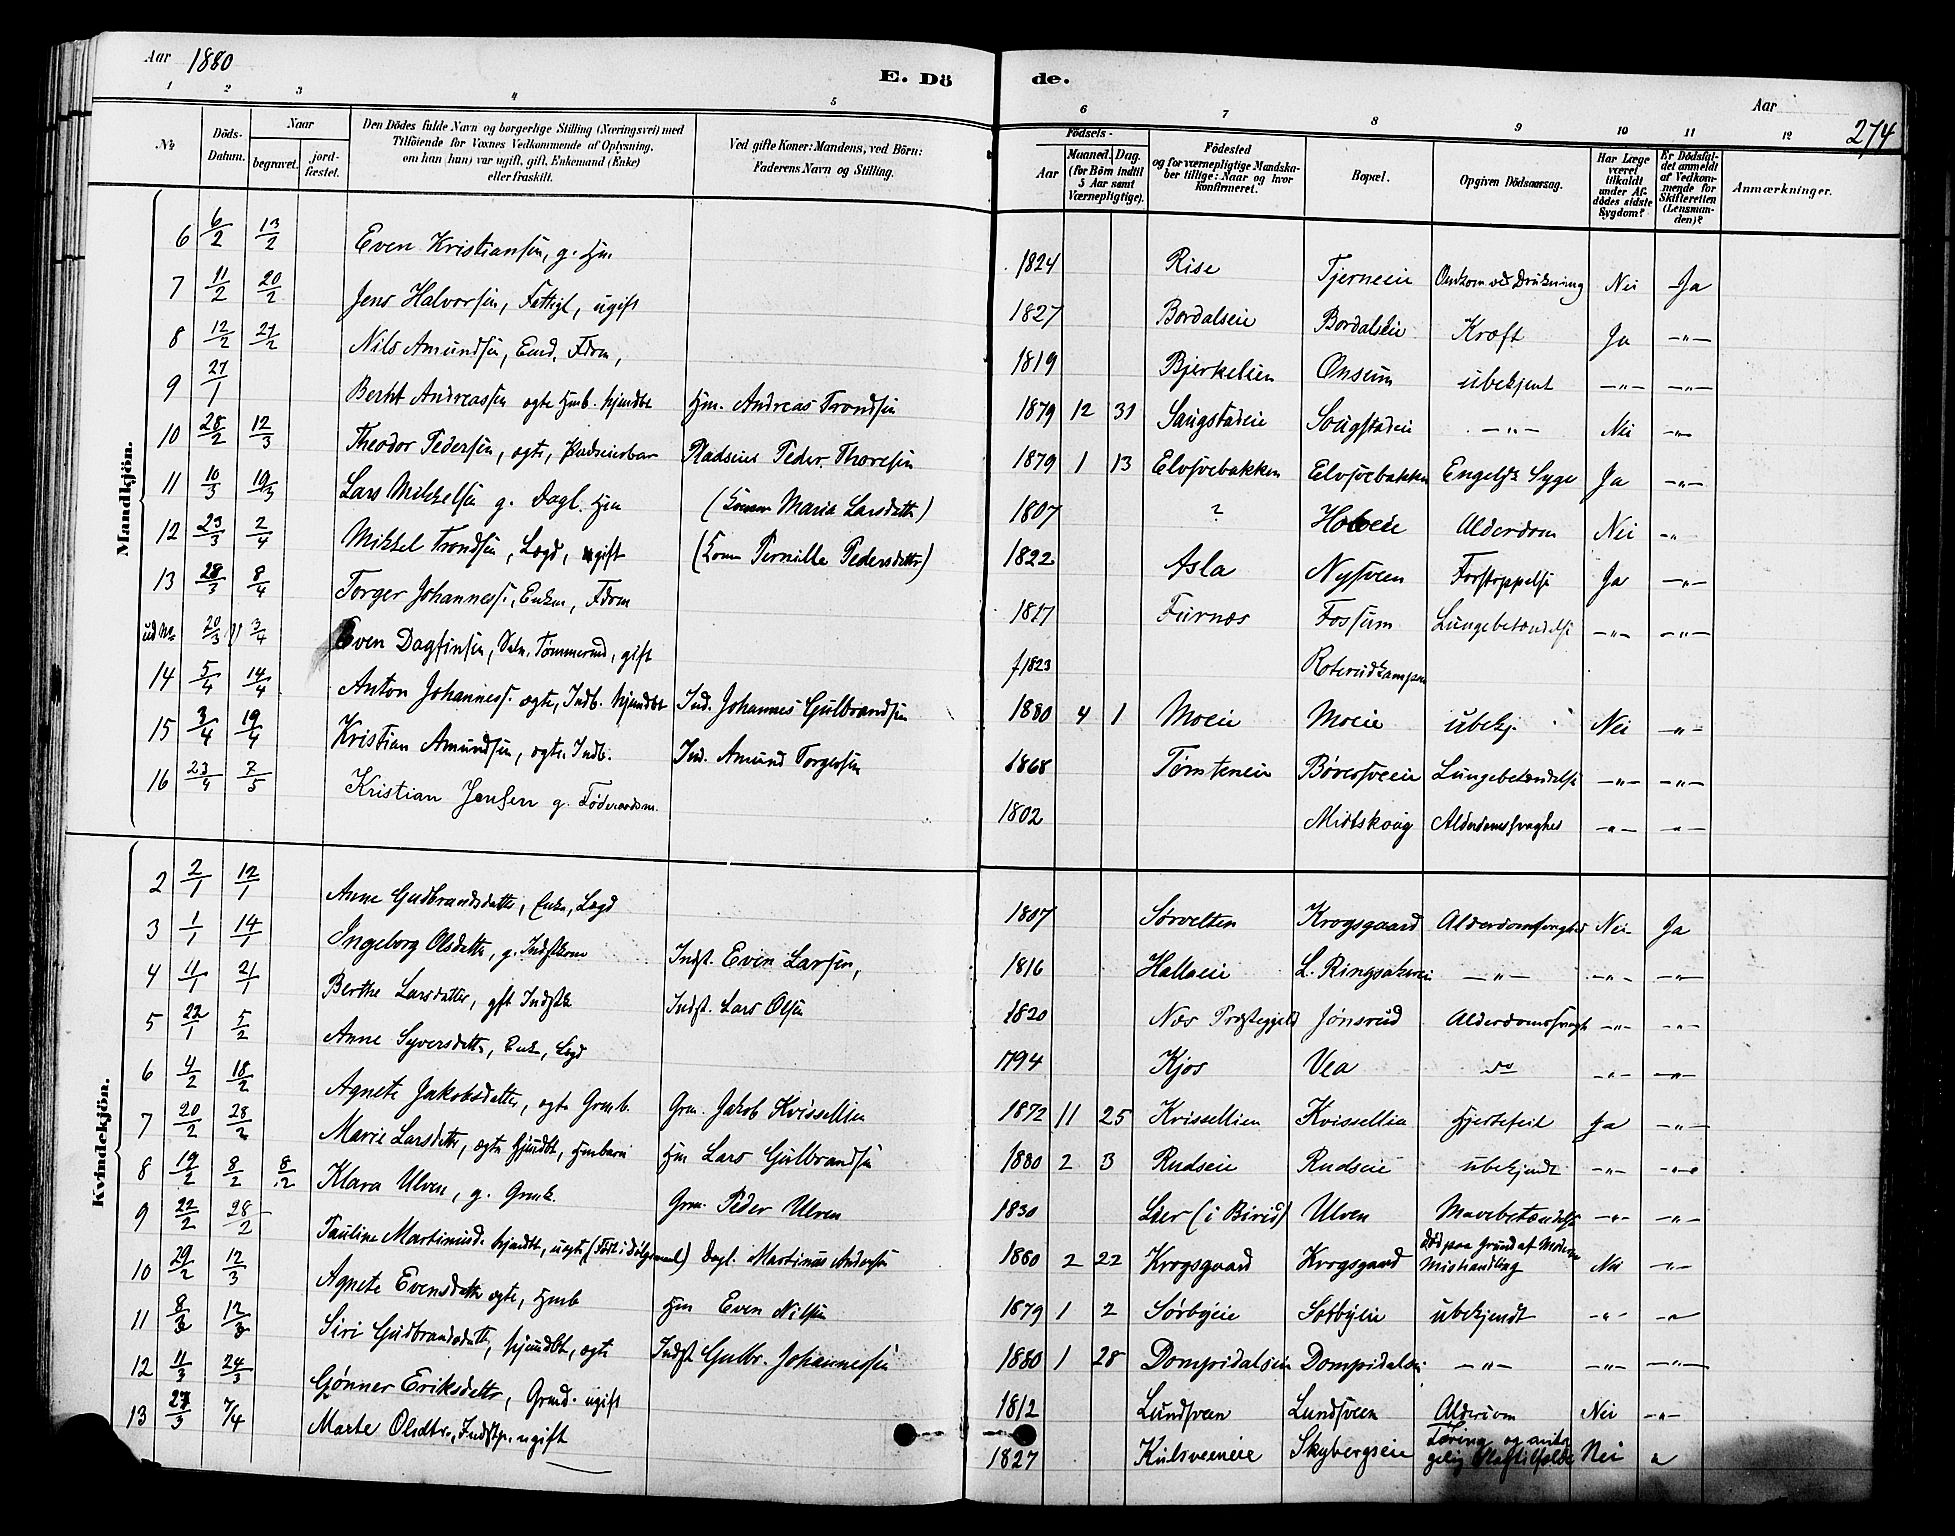 Aar 1880
E. Dö de.
Aar
274
1 2 3 4 5 6 7 8 9 10 11 12
No
Döds-Datum.
Naar
begravet.
jord-fæstet.
Den Dödes fulde Navn og borgerlige Stilling (Næringsvei) med
Tilföiende for Voxnes Vedkommende af Oplysning,
om han (hun) var ugift, gift, Enkemand (Enke)
eller fraskilt.
Ved gifte Koner: Mandens, ved Börn:
Faderens Navn og Stilling.
Födsels-
Aar
Maaned. Dag.
(for Börn indtil
5 Aar samt
Værnepligtige).
Födested
og for værnepligtige Mandska-
ber tillige: Naar og hvor
konfirmeret.
Bopæl.
Opgiven Dödsaarsag.
Har Læge
været
tilkaldt
under Af-
dödes sidste
Sygdom?
Er Dödsfal-
det anmeldt
af Vedkom-
mende for
Skifteretten
(Lensman-
den)?
Anmærkninger.
Mandkjön.
6 6/2 13/2 Even Kristiansen, g. Hm. 1824 Rise Tjerneeie Omkom ved Drukning Nei Ja
7 11/2 20/2 Jens Halvorsen, Fattigl, ugift 1827 Bordalseie Bordalseie Kræft Ja —"—
8 12/2 21/2 Nils Amundsen, Fdrm, 1819 Bjerkelien Onsum ubekjent —"— —"—
9 27/1 Bernt Andreassen ægte Hmb. hjemdbt Hm. Andreas Trondsen 1879 12 31 Saugstadeie Saugstadeie —"— Nei —"—
10 28/2 12/3 Theodor Pedersen, ægte, Pladseier Peder Thoresen 1879 1 13 Elvsvebakken Elvsvebakken Engelsk Syge Ja —"—
11 10/3 19/3 Lars Mikkelsen g. Dagl. Hm (Konen Maria Larsdatter) 1807 ? Holoeie Alderdom Nei —"—
12 23/3 2/4 Mikkel Trondsen, Lægd, gift (Konen Pernille Pedersdatter) 1822 Asla Nysveen Forstoppelse Ja —"—
13 28/3 8/4 Torger Johanness., Enkm, Fdrm 1817 Furnæs Fossum Lungebetændelse —"— —"—
ud No 20/3 3/4 Even Dagfinsen, Tømmermd, gift f 1823 Roterudkampen
14 5/4 14/4 Anton Johanness. ægte, Indb. hjemdbt Ind. Johannes Gulbrandsen 1880 4 1 Moeie Moeie ubekj. Nei —"—
15 3/4 19/4 Kristian Amundsen, ægte Indb. Ind. Amund Torgersen 1868 Tømteneie Bøversveeie Lungebetændelse —"— —"—
16 23/4 7/5 Kristian Jensen g. Føderaadsm. 1802 Midtskoug Alderdomssvaghed —"— —"—
Kvindekjön.
2 2/1 12/1 Anne Gudbrandsdatter, Enke, Lægd 1807 Sørvelten Krogsgaard Alderdomssvaghed Nei Ja
3 1/1 14/1 Ingeborg Olsdatter, g. Indstkone Indst. Even Larsen, 1816 Hallaeie L. Ringsakereie —"— —"— —"—
4 11/1 21/1 Berthe Larsdatter, gft Indstk Indst. Lars Olsen 1820 Næs Præstegjeld Jønsrud Alderdomssvagh —"— —"—
5 22/1 5/2 Anne Syversdatter, Enke, Lægd 1794 Kjos Vea do —"— —"—
6 4/2 18/2 Agnete Jakobsdatter, ægte Grmb. Grm. Jakob Kvissellien 1872 11 25 Kvissellien Kvissellien Hjertefeil Ja —"—
7 20/2 28/2 Marie Larsdatter, ægte Hjmdbt, Hmbarn Hm Lars Gulbrandsen 1880 2 3 Rudseie Rudseie ubekjendt —"— —"—
8 19/2 8/2 8/2 Klara Ulven, g. Grmk. Grm. Peder Ulven 1830 Lier (i Birid) Ulven Mavebetændelse —"— —"—
9 22/2 28/2 Pauline Martinusd. hjemdbt, uægte (Født i Dølgsmaal) Dagl. Martinus Andersen 1880 2 22 Krogsgaard Krogsgaard Død paa Grund af Moderens Mishandling Nei —"—
10 29/2 12/3 Agnete Evensdatter ægte, Hmb Hm Even Nilsen 1879 1 2 Sørbyeie Sørbyeie ubekjendt —"— —"—
11 8/3 12/3 Siri Gudbrandsdatter, hjemdbt, ægte Indst Gulbr. Johannessen 1880 1 28 Dompidalseie Dompidalseie —"— —"— —"—
12 11/3 24/3 Gønner Eriksdatter, ugift 1812 Lundsveen Lundsveen Alderdom Nei —"—
13 27/3 7/4 Marte Olsdtr., Indstp. ugift 1827 Kulsveeneie Skybergseie Tæring og Nei "